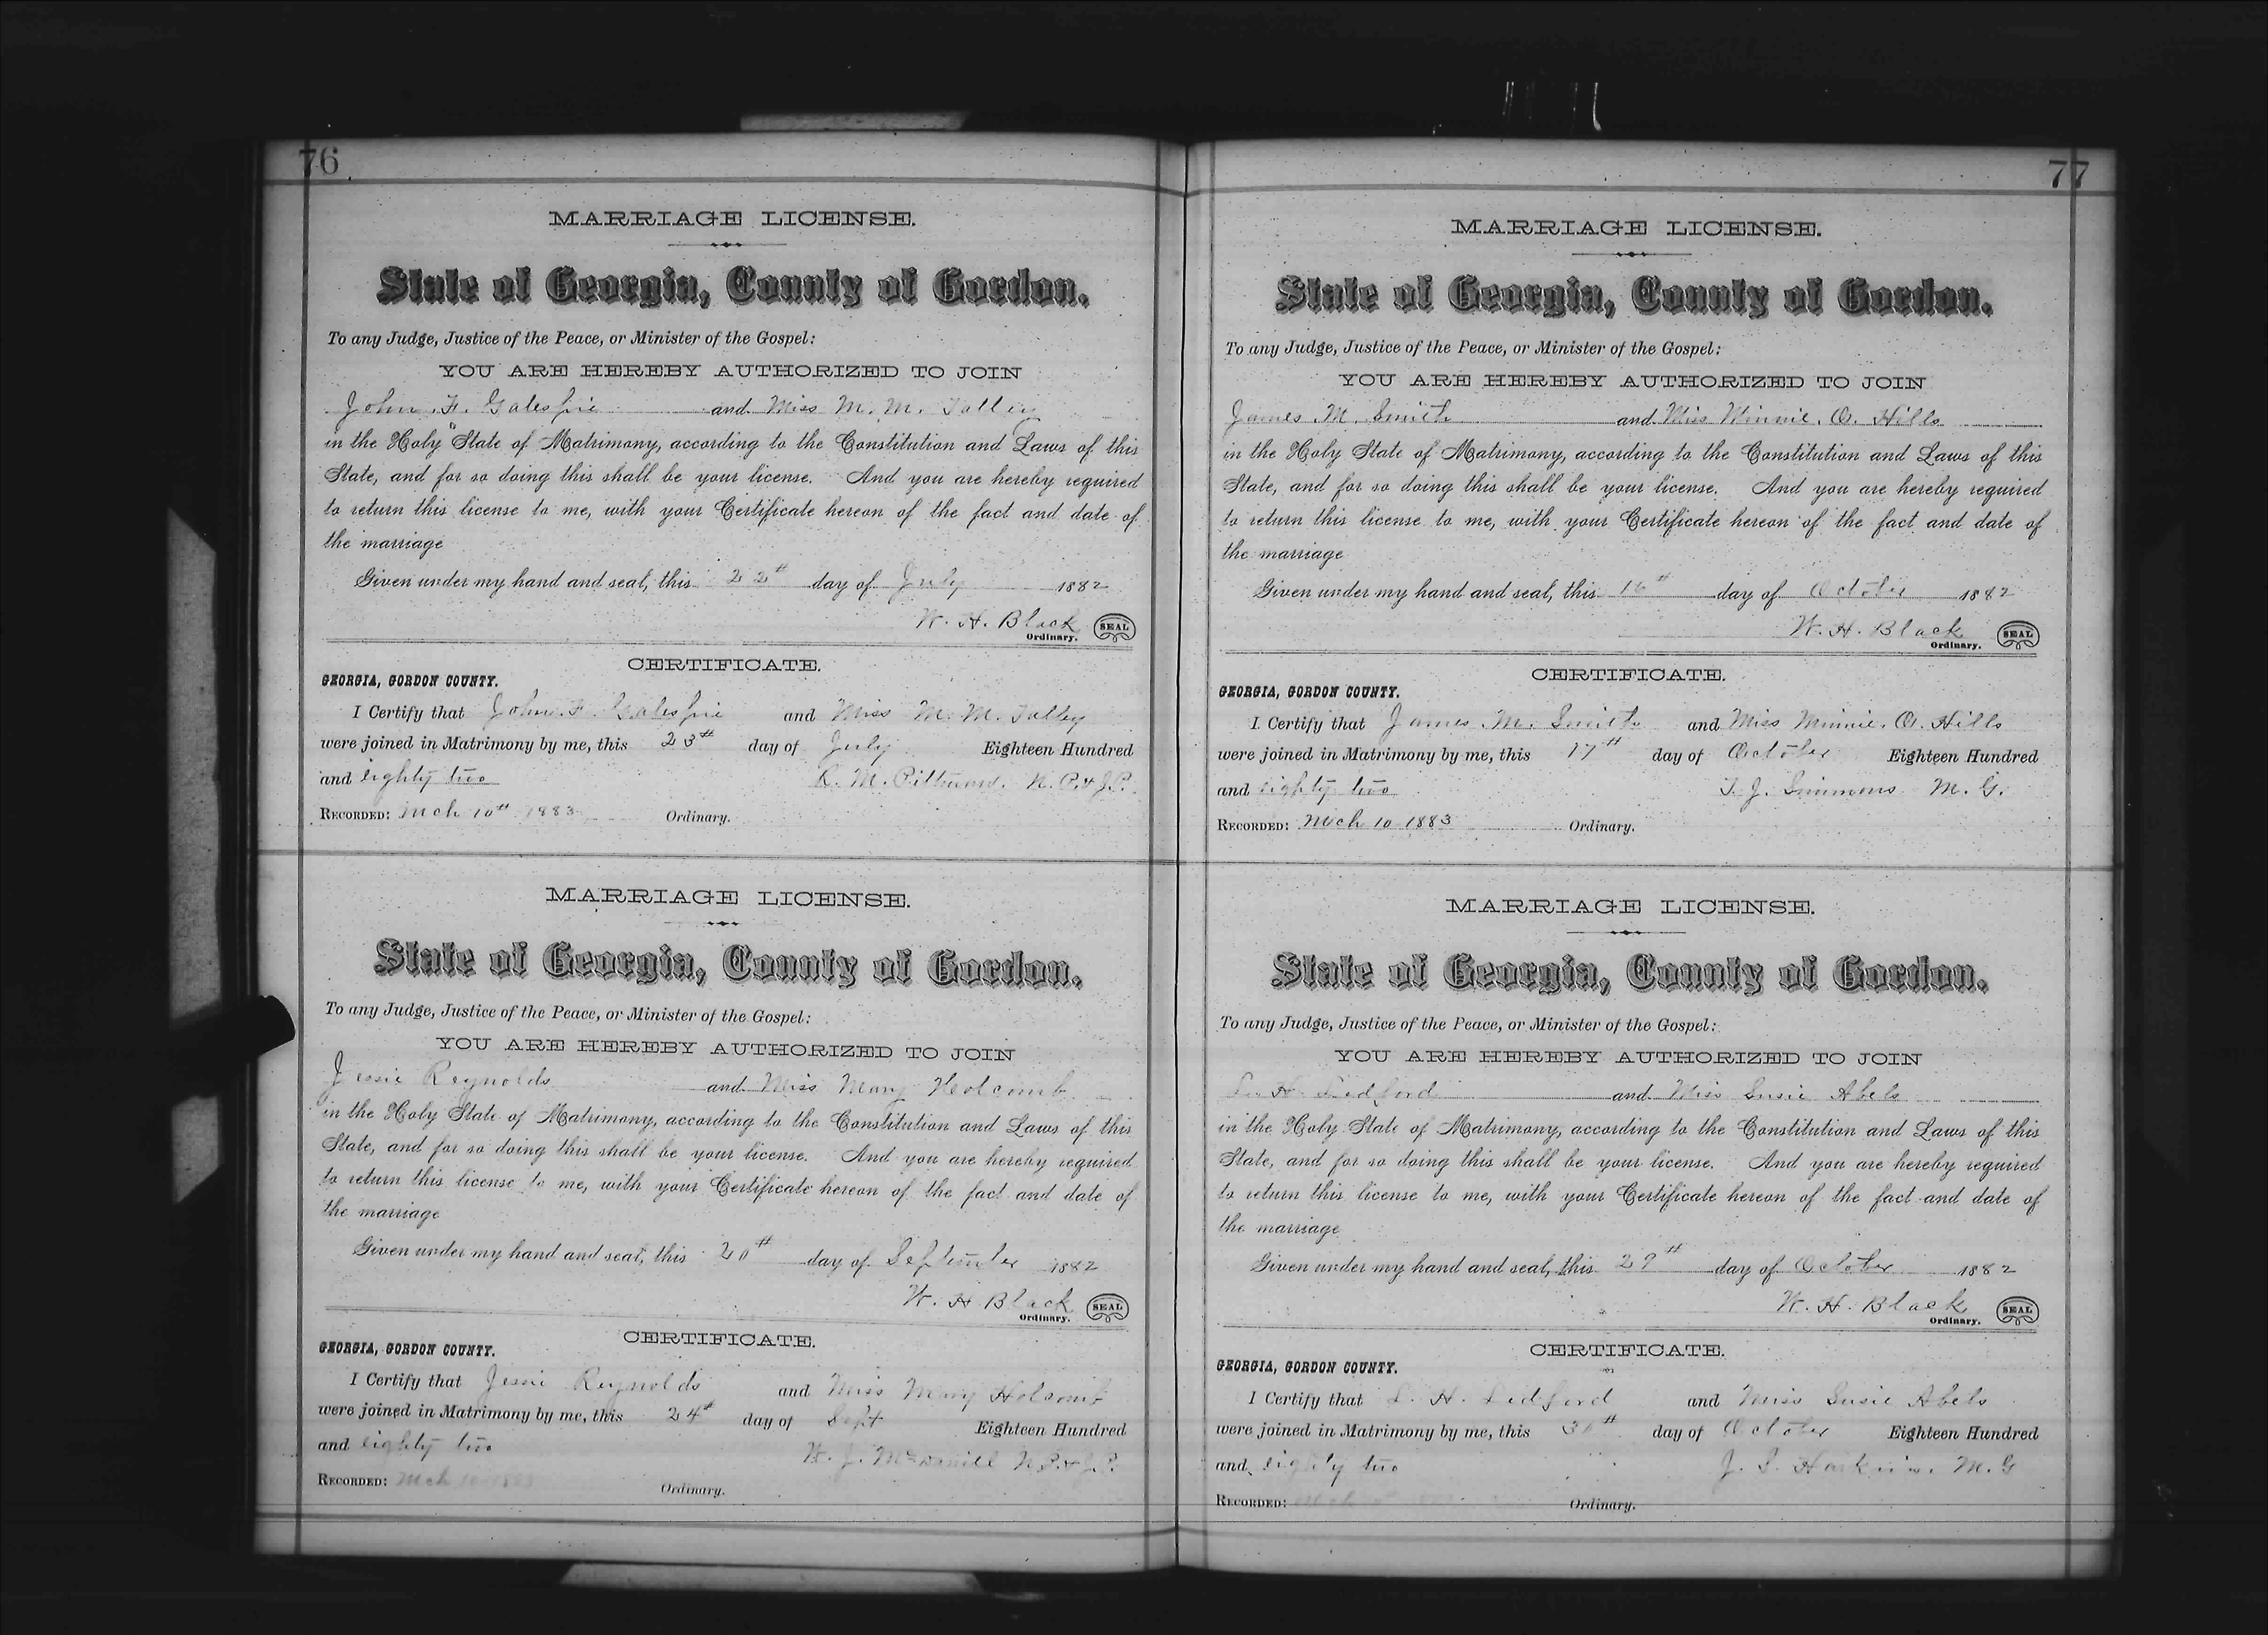 76
MARRIAGE LICENSE.
State of Georgia, County of Gordon.
To any Judge, Justice of the Peace, or Minister of the Gospel:
YOU ARE HEREBY AUTHORIZED TO JOIN
John. F. Galespie and Miss M. M. Talley
in the Holy State of Matrimony, according to the Constitution and Laws of this
State, and for so doing this shall be your license. And you are hereby required
to return this license to me, with your Certificate hereon of the fact and date of
the marriage
Given under my hand and seal, this 22th day of July 1882
W. H. Black SEAL
Ordinary.
CERTIFICATE.
GEORGIA, GORDON COUNTY.
I Certify that John. F. Galespie and Miss M. M. Talley
were joined in Matrimony by me, this 23th day of July Eighteen Hundred
and eighty two M. N. P. & J. P.
RECORDED: Mch 10th 1883 Ordinary.
MARRIAGE LICENSE.
State of Georgia, County of Gordon.
To any Judge, Justice of the Peace, or Minister of the Gospel:
YOU ARE HEREBY AUTHORIZED TO JOIN
Jessie Reynolds and Miss Mary Holcomb
in the Holy State of Matrimony, according to the Constitution and Laws of this
State, and for so doing this shall be your license. And you are hereby required
to return this license to me, with your Certificate hereon of the fact and date of
the marriage
Given under my hand and seal, this 20th day of September 1882
W. H Black SEAL
Ordinary.
CERTIFICATE.
GEORGIA, GORDON COUNTY.
I Certify that Jessie Reynolds and Miss Mary Holcomb
were joined in Matrimony by me, this 24th day of Sept Eighteen Hundred
and eighty two W. J. McDaniell N. P. & J. P.
RECORDED: Mch 10 1883 Ordinary.
77
MARRIAGE LICENSE.
State of Georgia, County of Gordon.
To any Judge, Justice of the Peace, or Minister of the Gospel:
YOU ARE HEREBY AUTHORIZED TO JOIN
James. M. Smith and Miss Minnie. O. Hills
in the Holy State of Matrimony, according to the Constitution and Laws of this
State, and for so doing this shall be your license. And you are hereby required
to return this license to me, with your Certificate hereon of the fact and date of
the marriage
Given under my hand and seal, this 16th day of October 1882
W. H. Black SEAL
Ordinary.
CERTIFICATE.
GEORGIA, GORDON COUNTY.
I Certify that James. M. Smith and Miss Minnie. O. Hills
were joined in Matrimony by me, this 17th day of October Eighteen Hundred
and eighty two T. J. Simmons M. G.
RECORDED: Mch 10 1883 Ordinary.
MARRIAGE LICENSE.
State of Georgia, County of Gordon.
To any Judge, Justice of the Peace, or Minister of the Gospel:
YOU ARE HEREBY AUTHORIZED TO JOIN
L. H. Ledford and Miss Susie Abels
in the Holy State of Matrimony, according to the Constitution and Laws of this
State, and for so doing this shall be your license. And you are hereby required
to return this license to me, with your Certificate hereon of the fact and date of
the marriage
Given under my hand and seal, this 29th day of October 1882
W. H. Black SEAL
Ordinary.
CERTIFICATE.
GEORGIA, GORDON COUNTY.
I Certify that L. H. Ledford and Miss Susie Abels
were joined in Matrimony by me, this 30th day of October Eighteen Hundred
and eighty two J. S. Harkins. M. G
RECORDED: Ordinary.